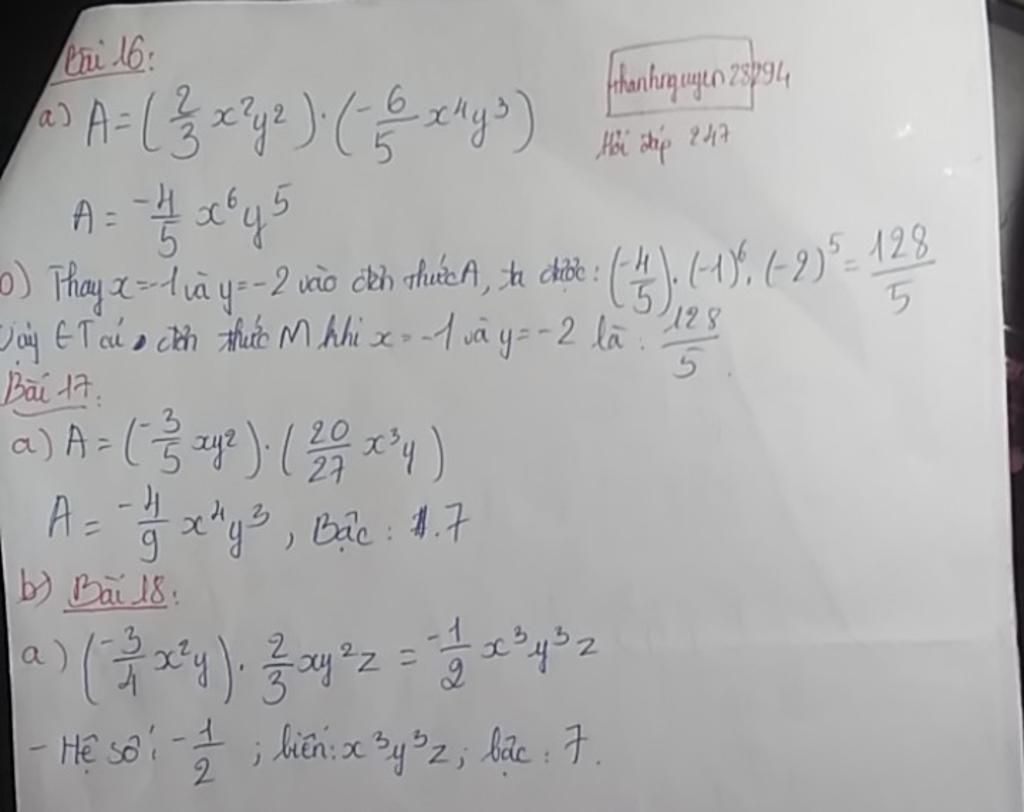 Bài 16:
thanhnguyen28294
Hỏi đáp 247
a) A = (2/3 x²y²) · (-6/5 x⁴y³)
A = -4/5 x⁶y⁵
b) Thay x = -1 và y = -2 vào đơn thức A, ta được: (-4/5) · (-1)⁶ · (-2)⁵ = 128/5
Vậy GT của đơn thức M khi x = -1 và y = -2 là: 128/5.
Bài 17:
a) A = (-3/5 xy²) · (20/27 x³y)
A = -4/9 x⁴y³, Bậc: 7
b) Bài 18:
a) (-3/4 x²y) · 2/3 xy²z = -1/2 x³y³z
- Hệ số: -1/2; biến: x³y³z; bậc: 7.